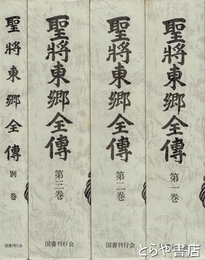 聖將東郷全傳
第一巻
国書刊行会
聖將東郷全傳
第二巻
国書刊行会
聖將東郷全傳
第三巻
国書刊行会
聖將東郷全傳
別巻
国書刊行会
とらや書店